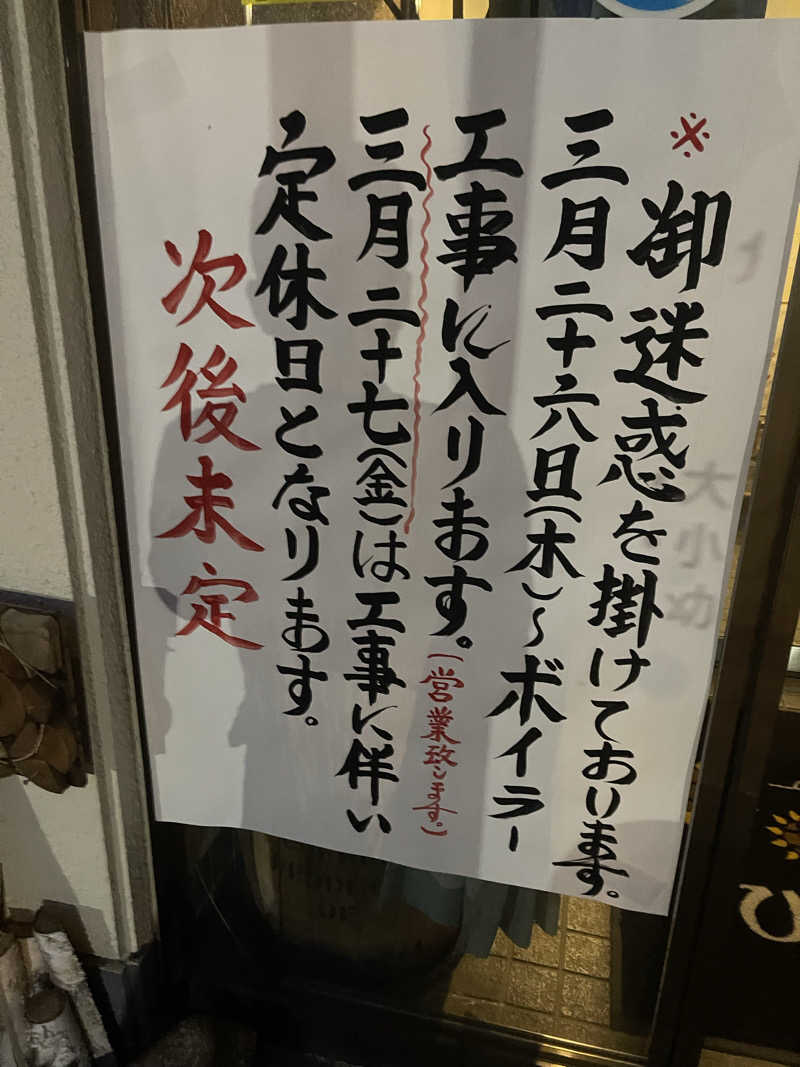 ※
御迷惑を掛けております。
三月二十六日(木)〜ボイラー
工事に入ります。(営業致します。)
三月二十七(金)は工事に伴い
定休日となります。
次後未定
大小幼
ひ